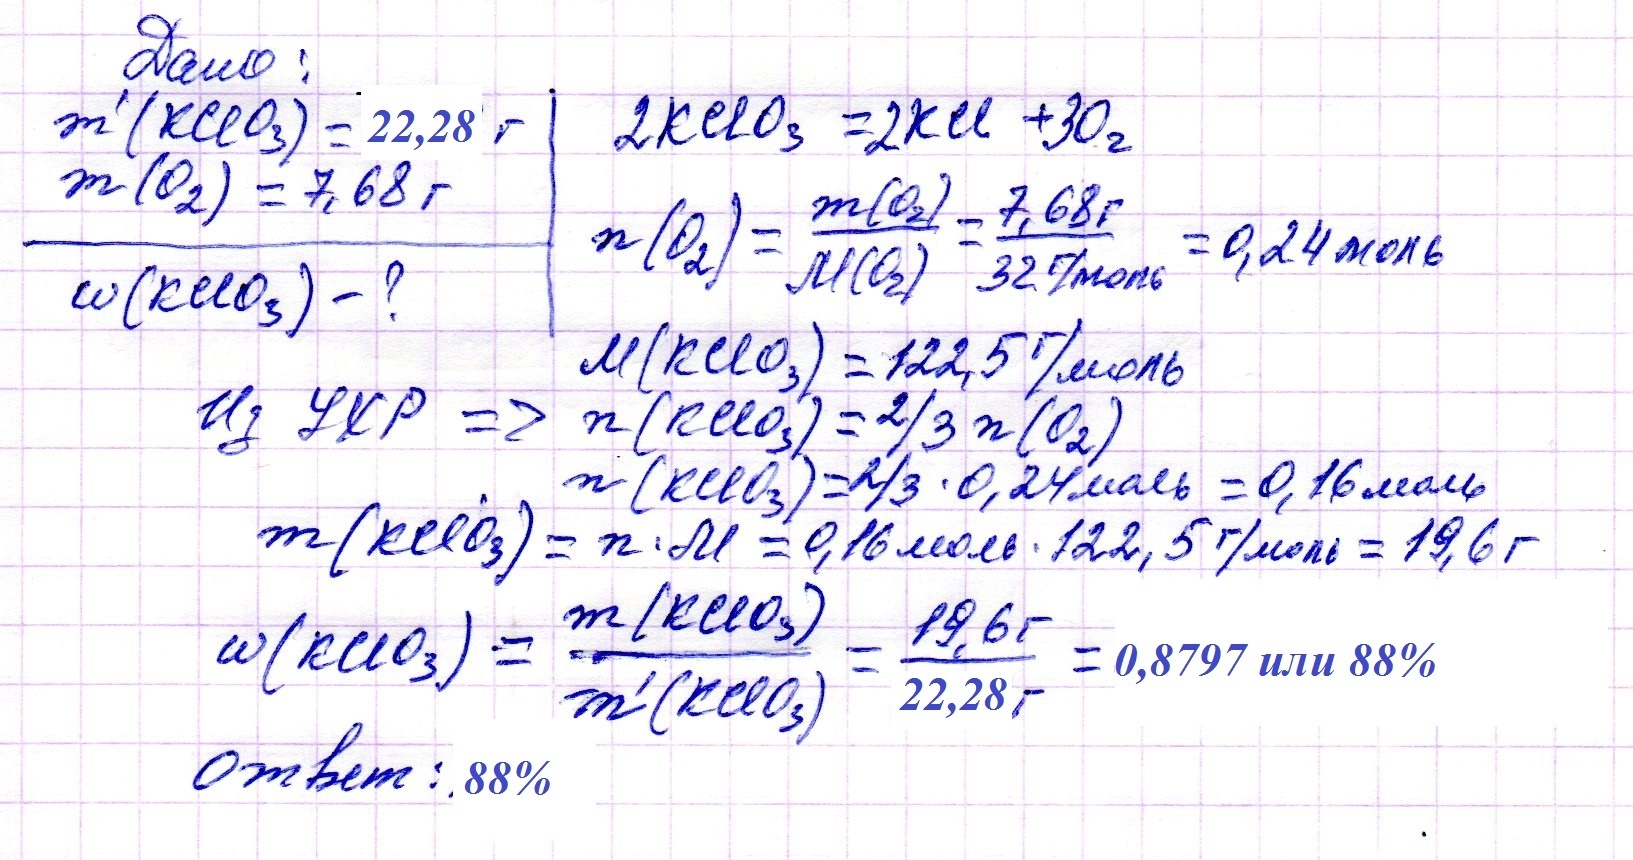 Дано:
m'(KClO₃) = 22,28 г
m(O₂) = 7,68 г
w(KClO₃) - ?
2KClO₃ = 2KCl + 3O₂
n(O₂) = m(O₂)/M(O₂) = 7,68г/32г/моль = 0,24 моль
M(KClO₃) = 122,5 г/моль
Из УХР => n(KClO₃) = 2/3 n(O₂)
n(KClO₃) = 2/3 · 0,24 моль = 0,16 моль
m(KClO₃) = n · M = 0,16 моль · 122,5 г/моль = 19,6 г
w(KClO₃) = m(KClO₃)/m'(KClO₃) = 19,6 г/22,28 г = 0,8797 или 88%
Ответ: 88%